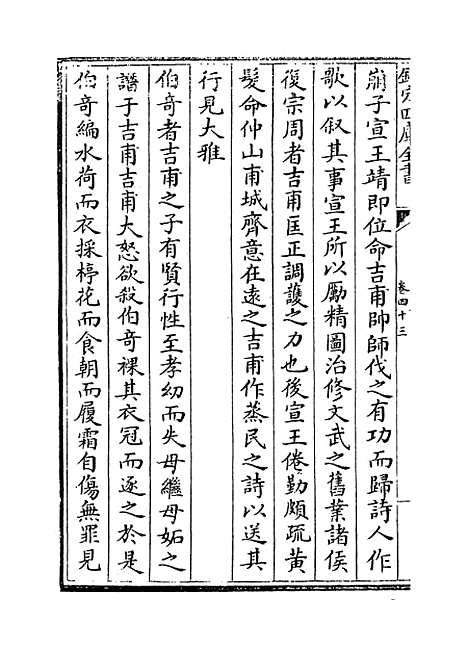 欽定四庫全書
卷四十三
崩子宣王靖即位命吉甫帥師伐之有功而歸詩人作
歌以叙其事宣王所以厲精圖治修文武之舊業諸侯
復宗周者吉甫匡正調護之力也後宣王倦勤頗疏黄
髮命仲山甫城齊意在逺之吉甫作蒸民之詩以送其
行見大雅
伯奇者吉甫之子有賢行性至孝幼而失母繼母妬之
譖于吉甫吉甫大怒欲殺伯奇裸其衣冠而逐之於是
伯奇編水荷而衣採楟花而食朝而履霜自傷無罪見